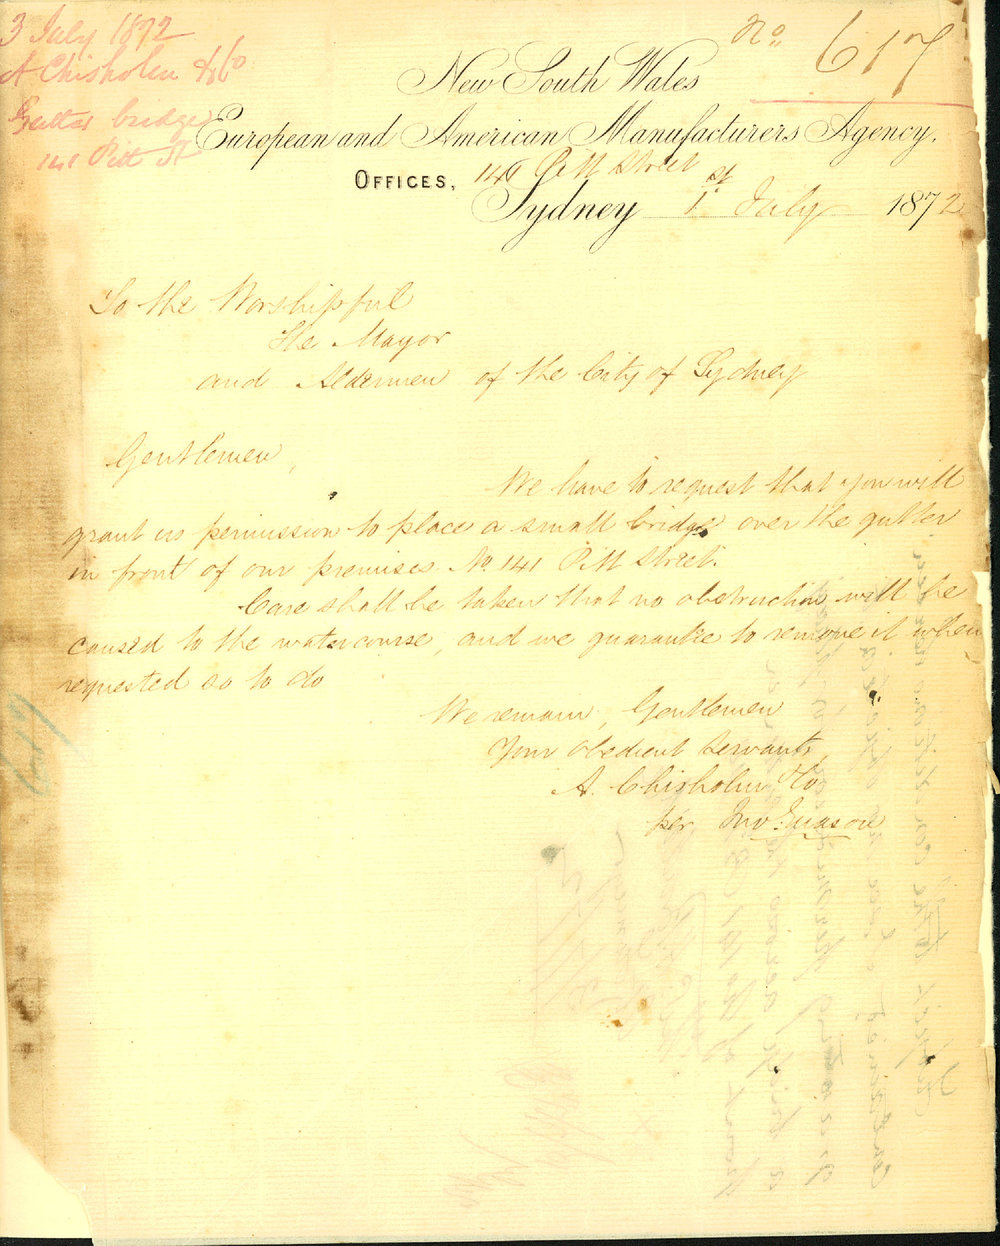 3 July 1872
A Chisholm & Co
Gutter bridge
141 Pitt St
No. 617
New South Wales
European and American Manufacturers Agency.
OFFICES, 141 Pitt Street
Sydney 1st July 1872
To the Worshipful
The Mayor
and Aldermen of the City of Sydney
Gentlemen,
We have to request that you will
grant us permission to place a small bridge over the gutter
in front of our premises No 141 Pitt Street.
Care shall be taken that no obstruction will be
caused to the watercourse, and we guarantee to remove it when
requested so to do
We remain, Gentlemen
Your obedient servants,
A. Chisholm & Co
per Jno.